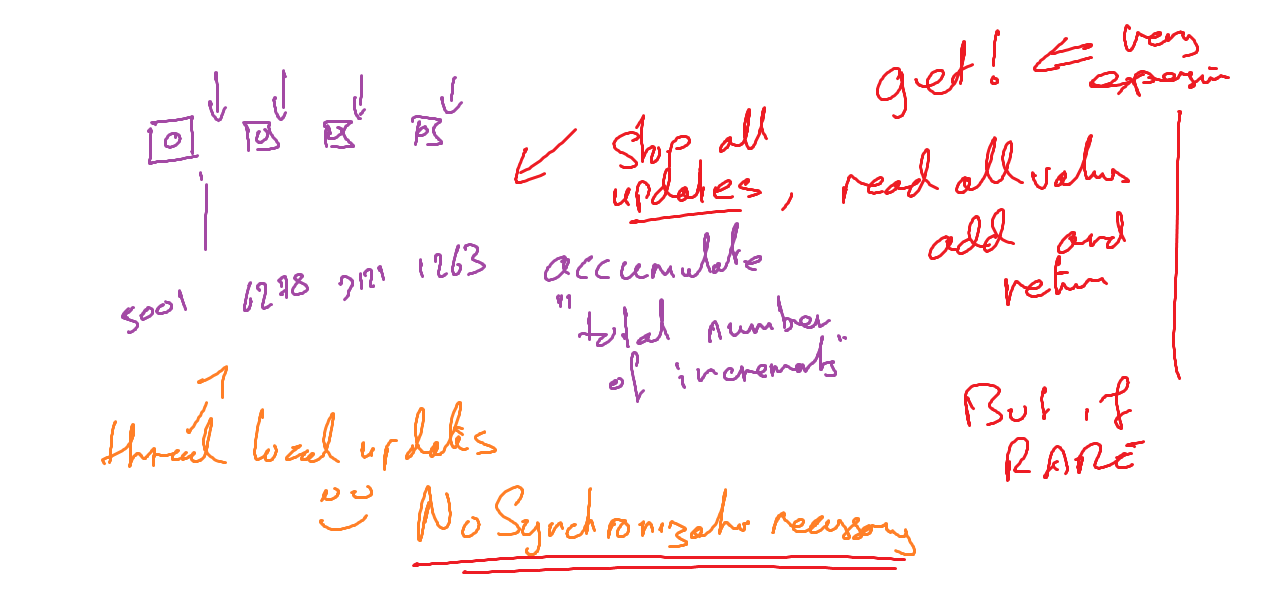 get! very
expensive
0 0 0 0
Stop all
updates, read all values
add and
return
5001 6278 3121 1263 accumulate
"total number
of increments"
But if
RARE
thread local updates
No Synchronization necessary